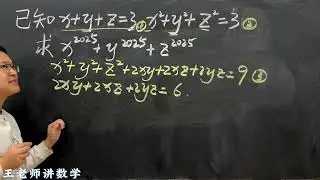 已知 x+y+z=3① x²+y²+z²=3②
求 x²⁰²⁵+y²⁰²⁵+z²⁰²⁵
x²+y²+z²+2xy+2xz+2yz=9③
2xy+2xz+2yz=6.
王老师讲数学